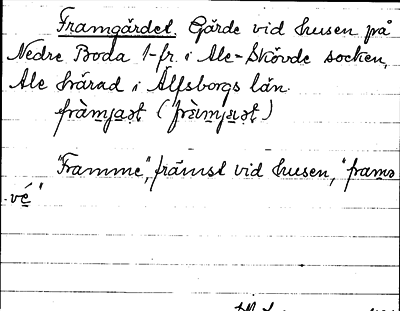 Framgärdet. Gärde vid husen på
Nedre Boda 1-fr. i Ale-Skövde socken,
Ale härad i Älfsborgs län.
"Framme", främst vid husen, "frams
vé"